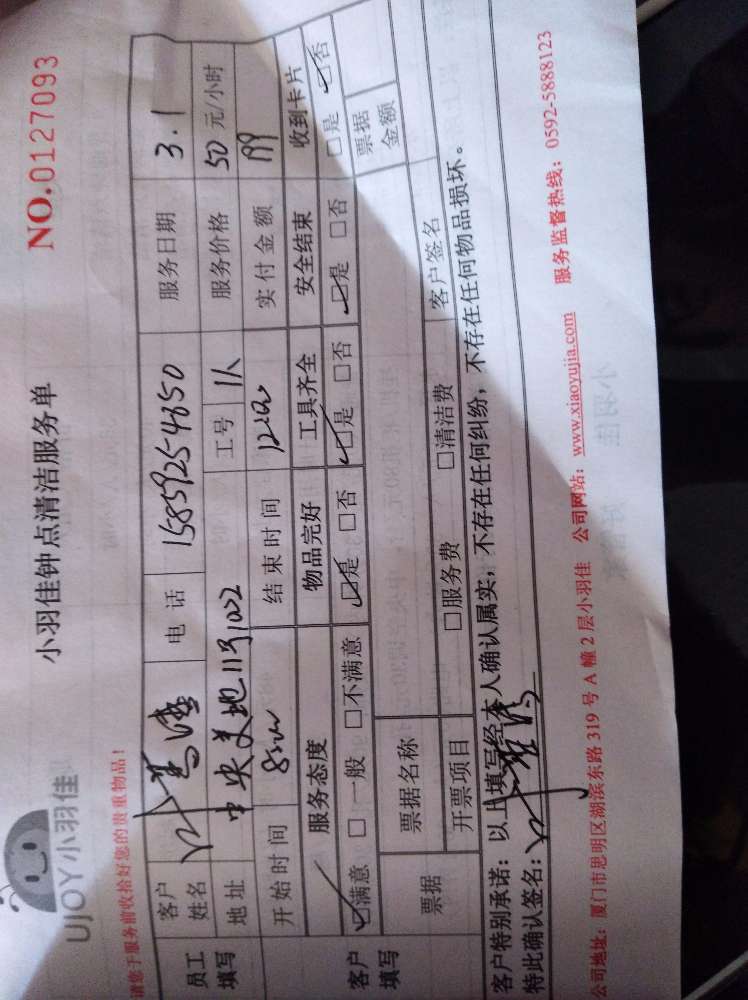 UJOY小羽佳
小羽佳钟点清洁服务单
NO.0127093
请您于服务前收拾好您的贵重物品！
员工填写
客户姓名
电话 15859254850
服务日期 3.1
地址 中央美地11号1022
工号
服务价格 50元/小时
开始时间
结束时间
实付金额
客户填写
服务态度 物品完好 工具齐全 安全结束 收到卡片
☑满意 □一般 □不满意 ☑是 □否 ☑是 □否 ☑是 □否 □是 ☑否
票据
票据名称
票据金额
开票项目 □服务费 □清洁费 客户签名
客户特别承诺：以上填写经本人确认属实，不存在任何纠纷，不存在任何物品损坏。
特此确认签名：
公司地址：厦门市思明区湖滨东路319号A幢2层小羽佳 公司网站：www.xiaoyujia.com 服务监督热线：0592-5888123